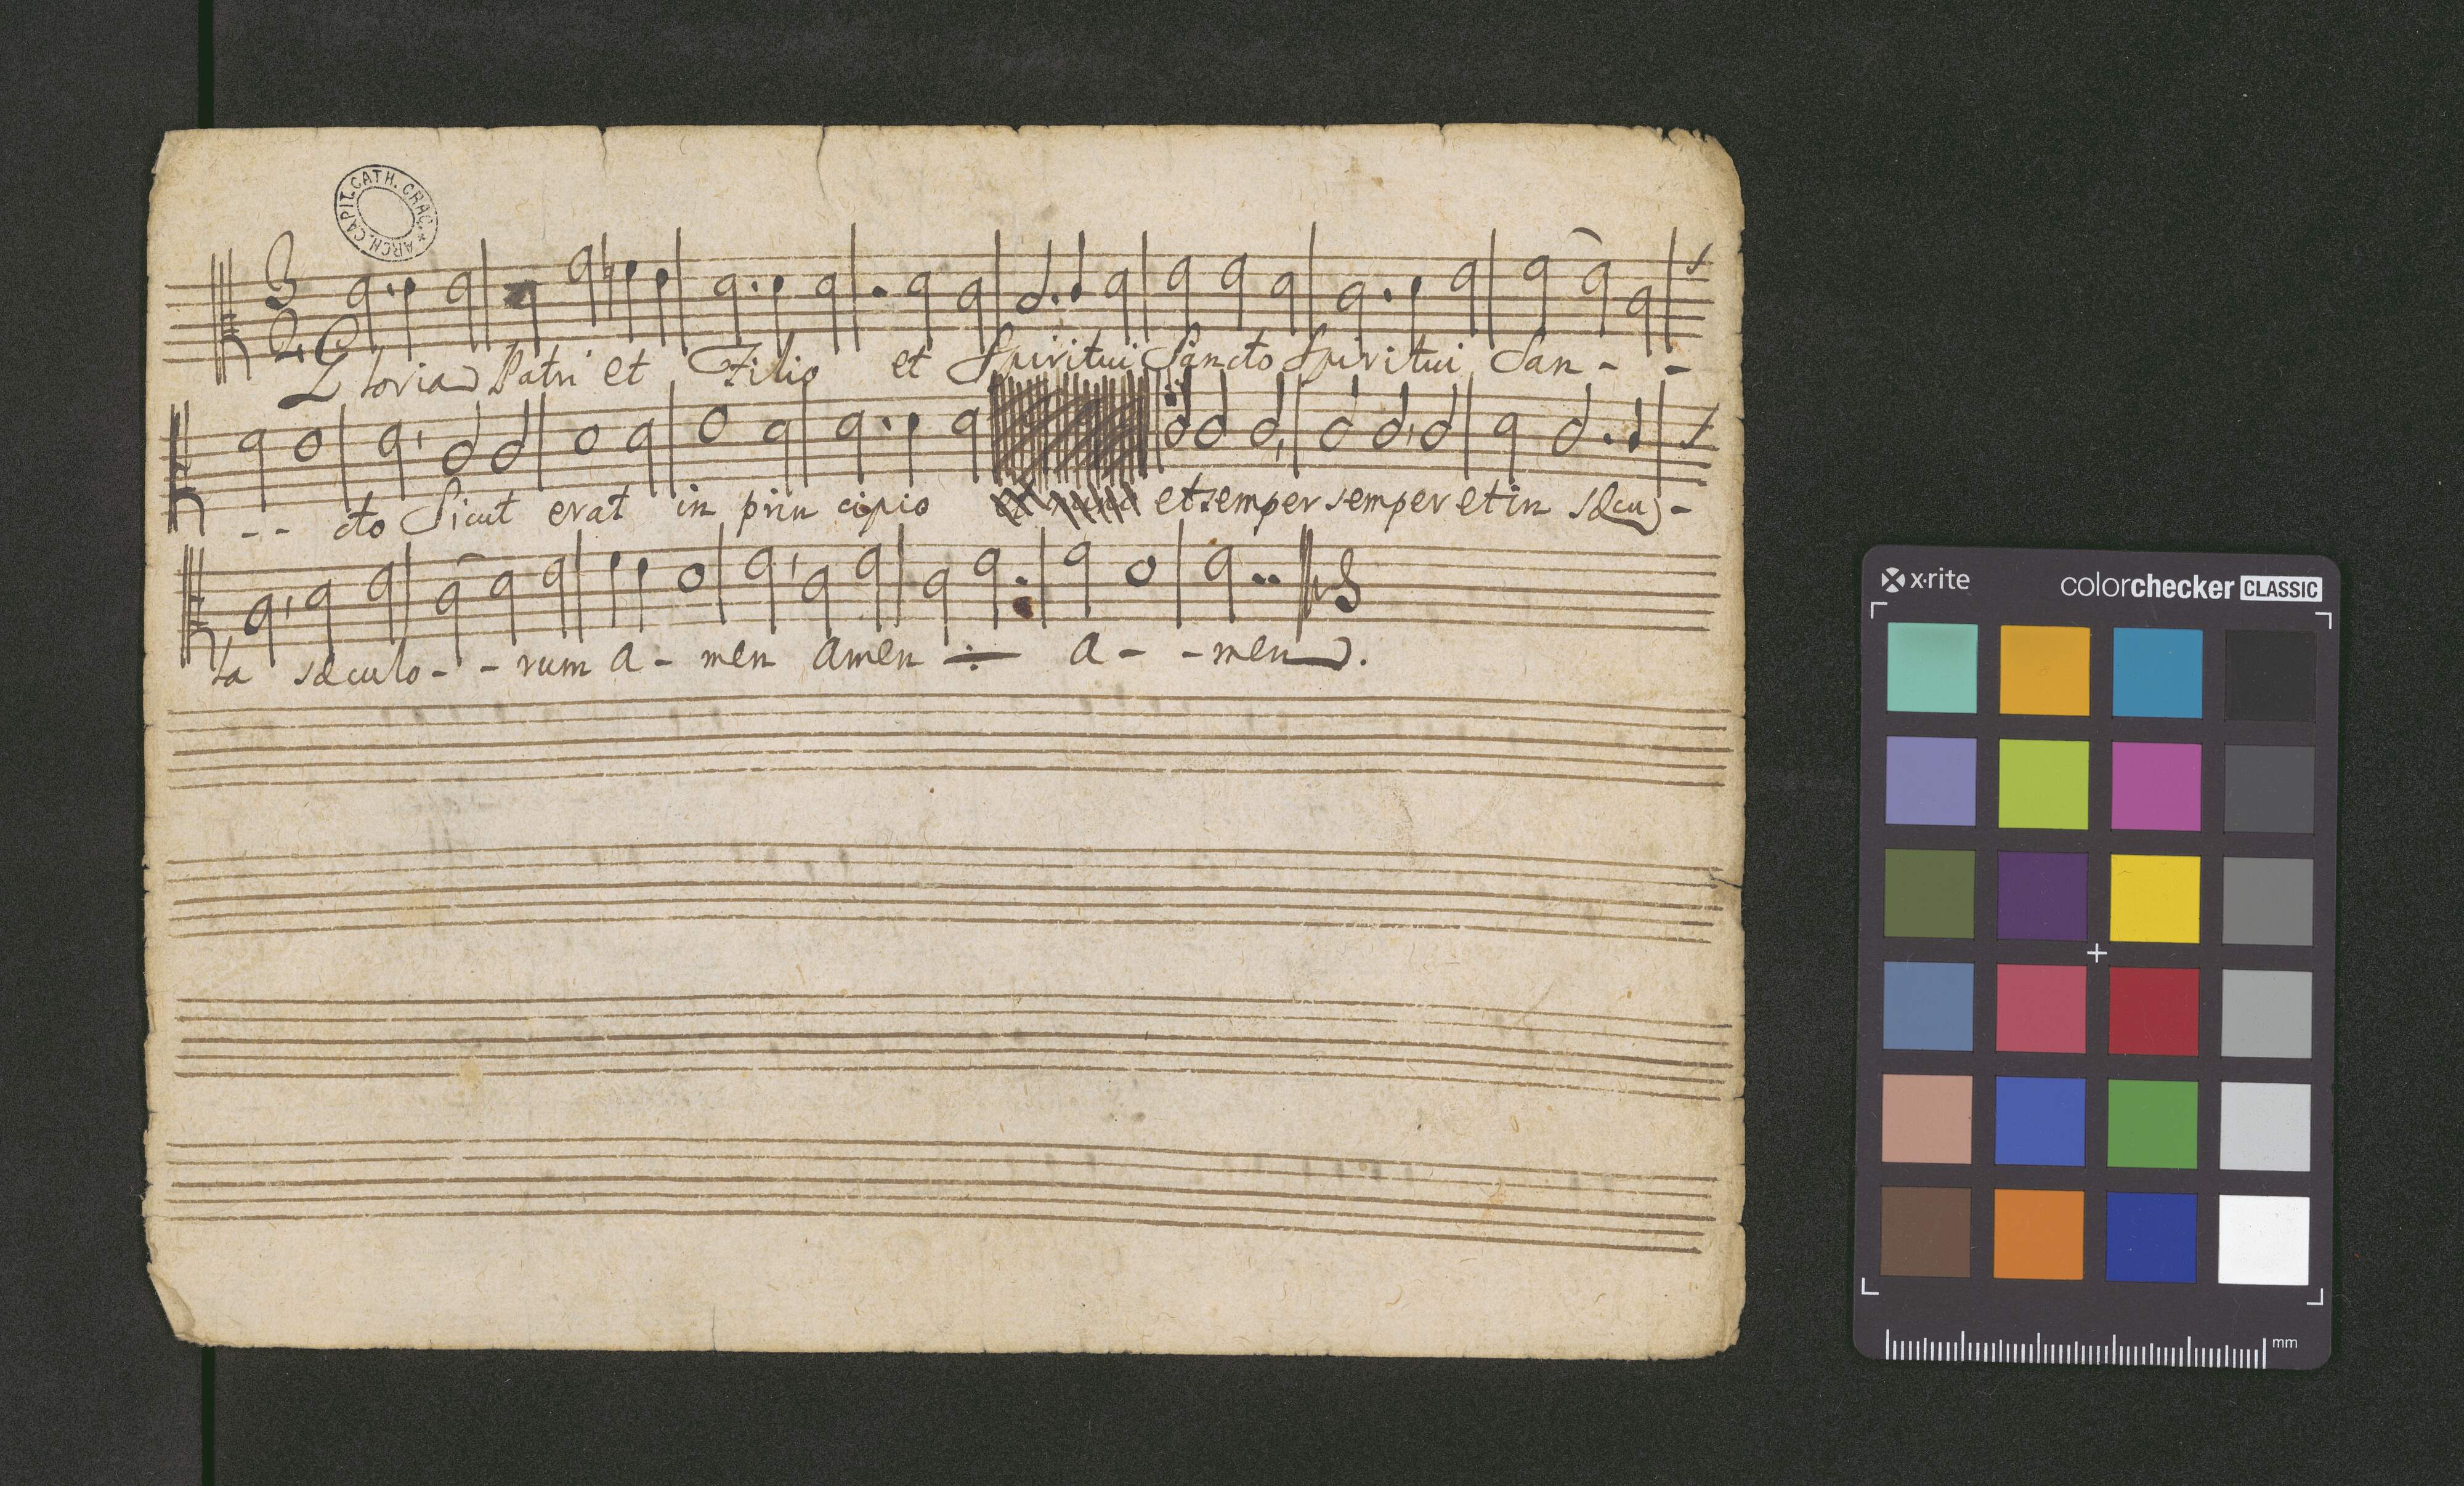 ARCH. CAPIT. CATH. CRAC. *
3
2
Gloria Patri et Filio et Spiritui Sancto Spiritui San - -
- - cto Sicut erat in prin cipio et semper semper et in sæcu -
la sæculo - - rum a - men amen ÷ a - - men.
x·rite colorchecker CLASSIC
mm